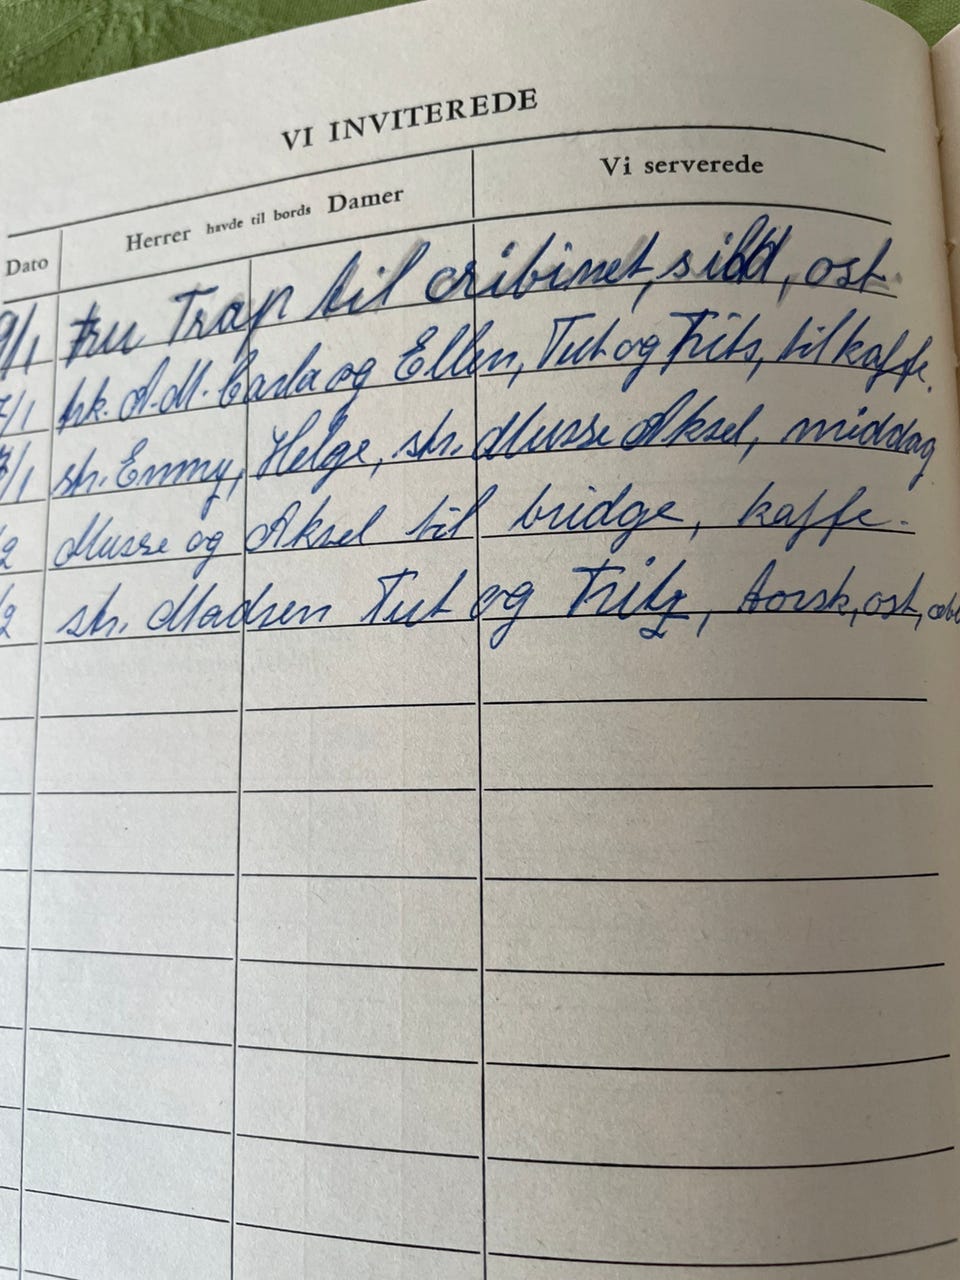 VI INVITEREDE
Dato Herrer havde til bords Damer Vi serverede
9/1 Fru Trap til cribinet, sild, ost.
7/1 frk. A.M. Carla og Ellen, Tut og Frits, til kaffe.
/1 str. Emmy, Helge, str. Musse Aksel, middag
/2 Musse og Aksel til bridge, kaffe.
/2 str. Madsen Tut og Fritz, torsk, ost,